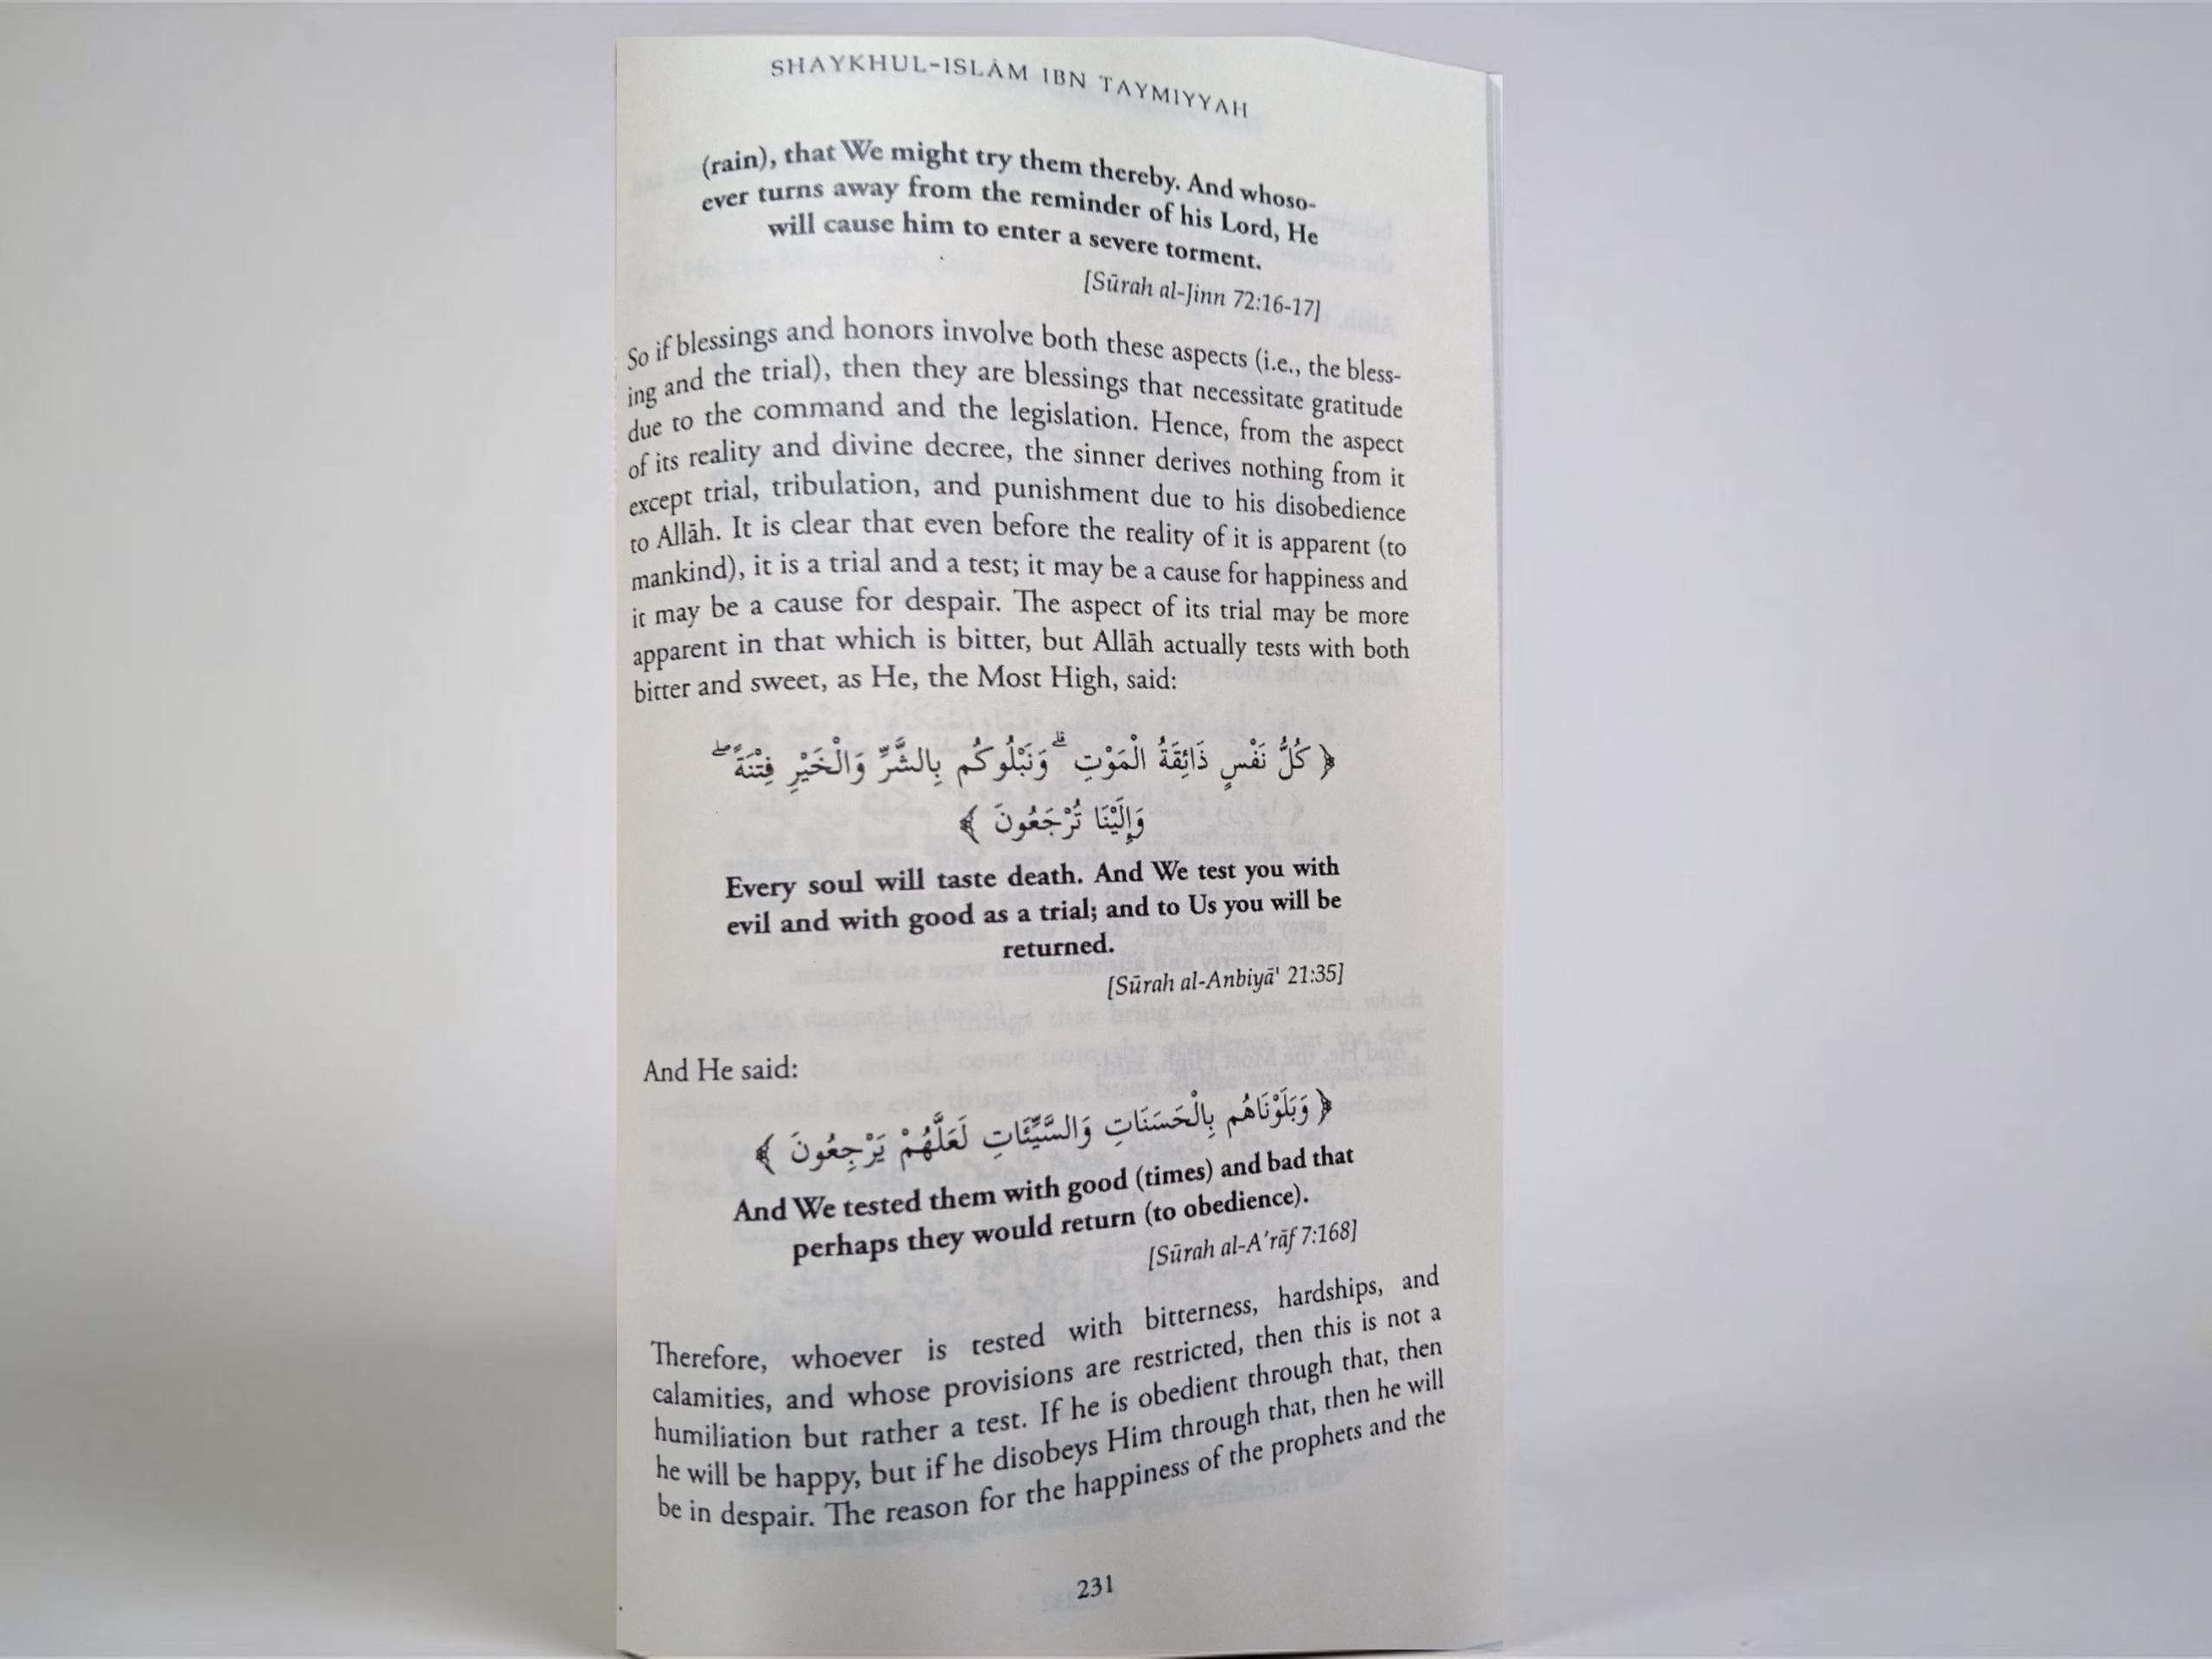 SHAYKHUL-ISLĀM IBN TAYMIYYAH
(rain), that We might try them thereby. And whoso-
ever turns away from the reminder of his Lord, He
will cause him to enter a severe torment.
[Sūrah al-Jinn 72:16-17]
So if blessings and honors involve both these aspects (i.e., the bless-
ing and the trial), then they are blessings that necessitate gratitude
due to the command and the legislation. Hence, from the aspect
of its reality and divine decree, the sinner derives nothing from it
except trial, tribulation, and punishment due to his disobedience
to Allāh. It is clear that even before the reality of it is apparent (to
mankind), it is a trial and a test; it may be a cause for happiness and
it may be a cause for despair. The aspect of its trial may be more
apparent in that which is bitter, but Allāh actually tests with both
bitter and sweet, as He, the Most High, said:
﴿ كُلُّ نَفْسٍ ذَائِقَةُ الْمَوْتِ ۗ وَنَبْلُوكُم بِالشَّرِّ وَالْخَيْرِ فِتْنَةً ۖ
وَإِلَيْنَا تُرْجَعُونَ ﴾
Every soul will taste death. And We test you with
evil and with good as a trial; and to Us you will be
returned.
[Sūrah al-Anbiyā' 21:35]
And He said:
﴿ وَبَلَوْنَاهُم بِالْحَسَنَاتِ وَالسَّيِّئَاتِ لَعَلَّهُمْ يَرْجِعُونَ ﴾
And We tested them with good (times) and bad that
perhaps they would return (to obedience).
[Sūrah al-A'rāf 7:168]
Therefore, whoever is tested with bitterness, hardships, and
calamities, and whose provisions are restricted, then this is not a
humiliation but rather a test. If he is obedient through that, then
he will be happy, but if he disobeys Him through that, then he will
be in despair. The reason for the happiness of the prophets and the
231